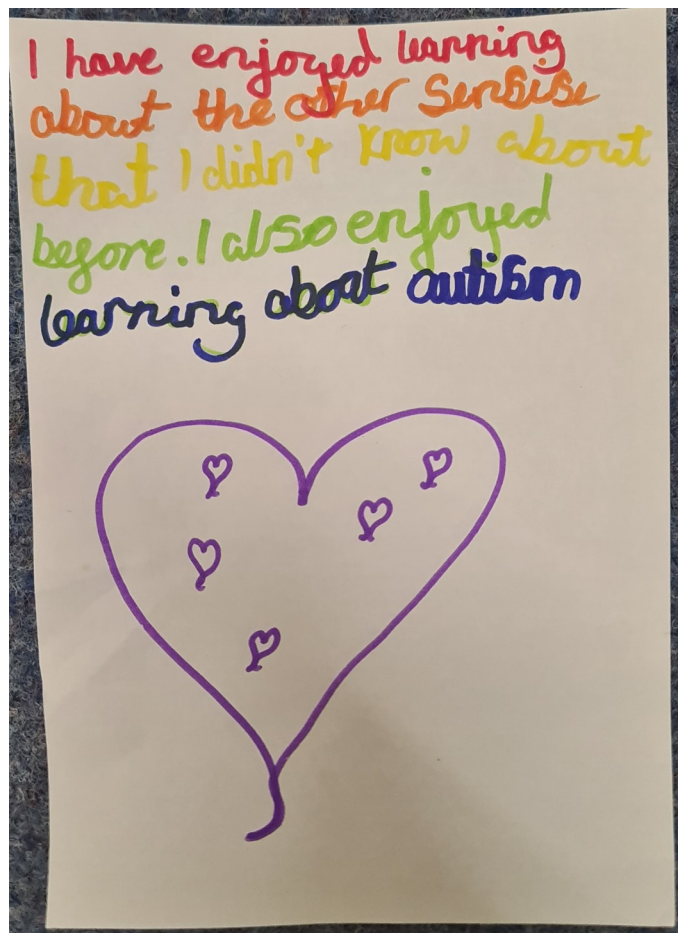 I have enjoyed learning
about the other Sensise
that I didn't know about
before. I also enjoyed
learning about autism